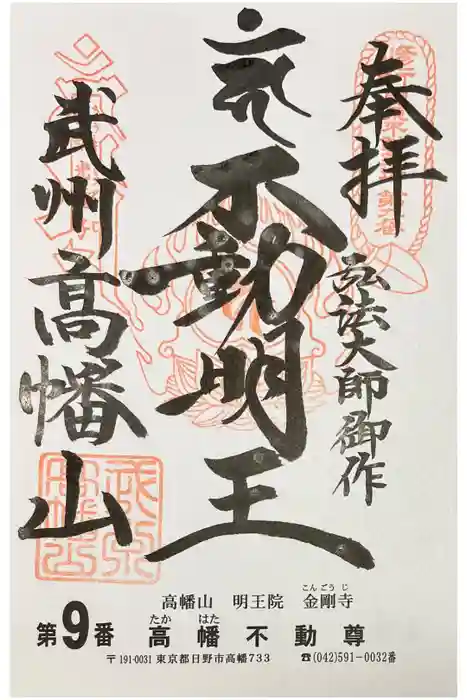 奉拝
弘法大師御作
不動明王
武州高幡山
高幡山 明王院 金剛寺
こんごうじ
第9番 高幡不動尊
たか はた
〒191-0031 東京都日野市高幡733 ☎(042)591-0032番